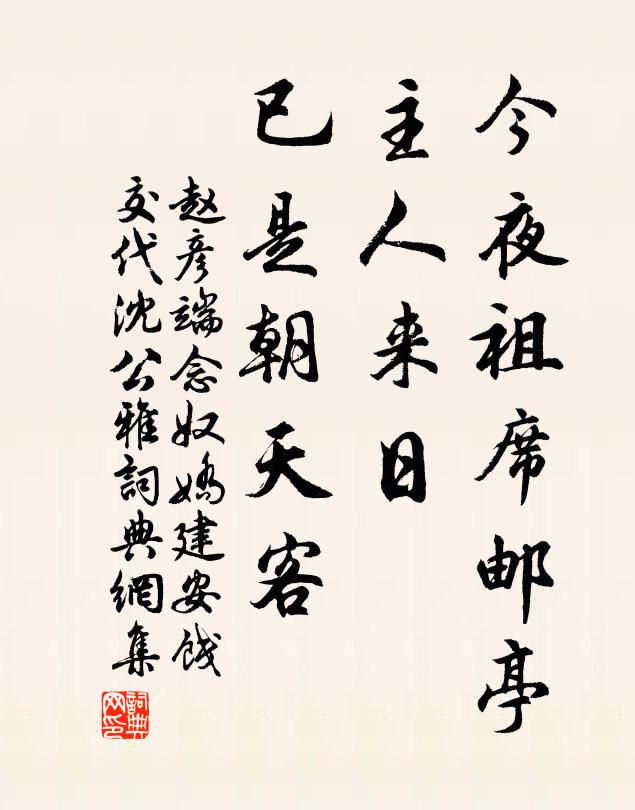 今夜祖席邮亭
主人来日
已是朝天客
赵彦端念奴娇建安饯
交代沈公雅詞典網集
詞典网印